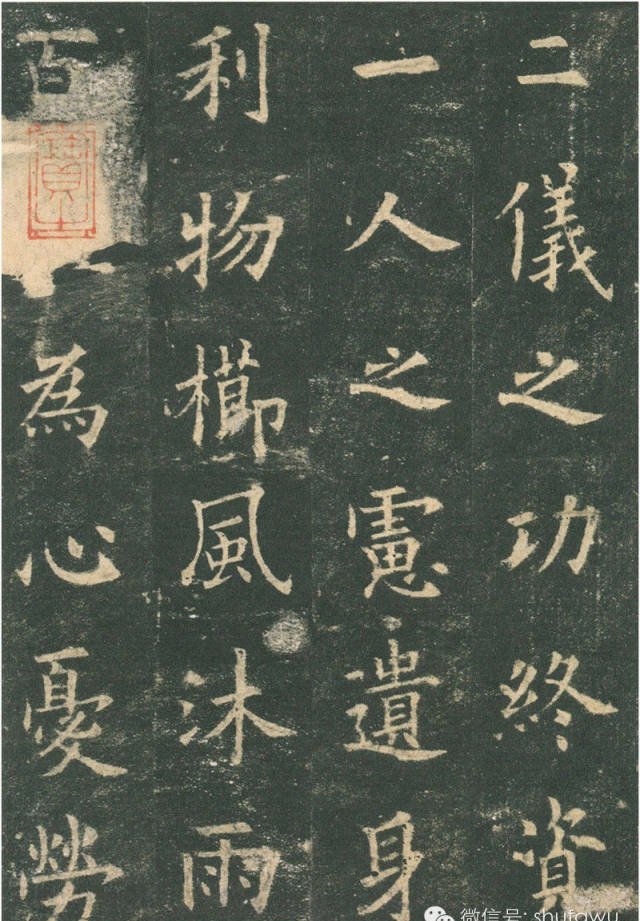 二儀之功終資
一人之憲遺身
利物櫛風沐雨
百
為心憂勞
微信号: shufawu